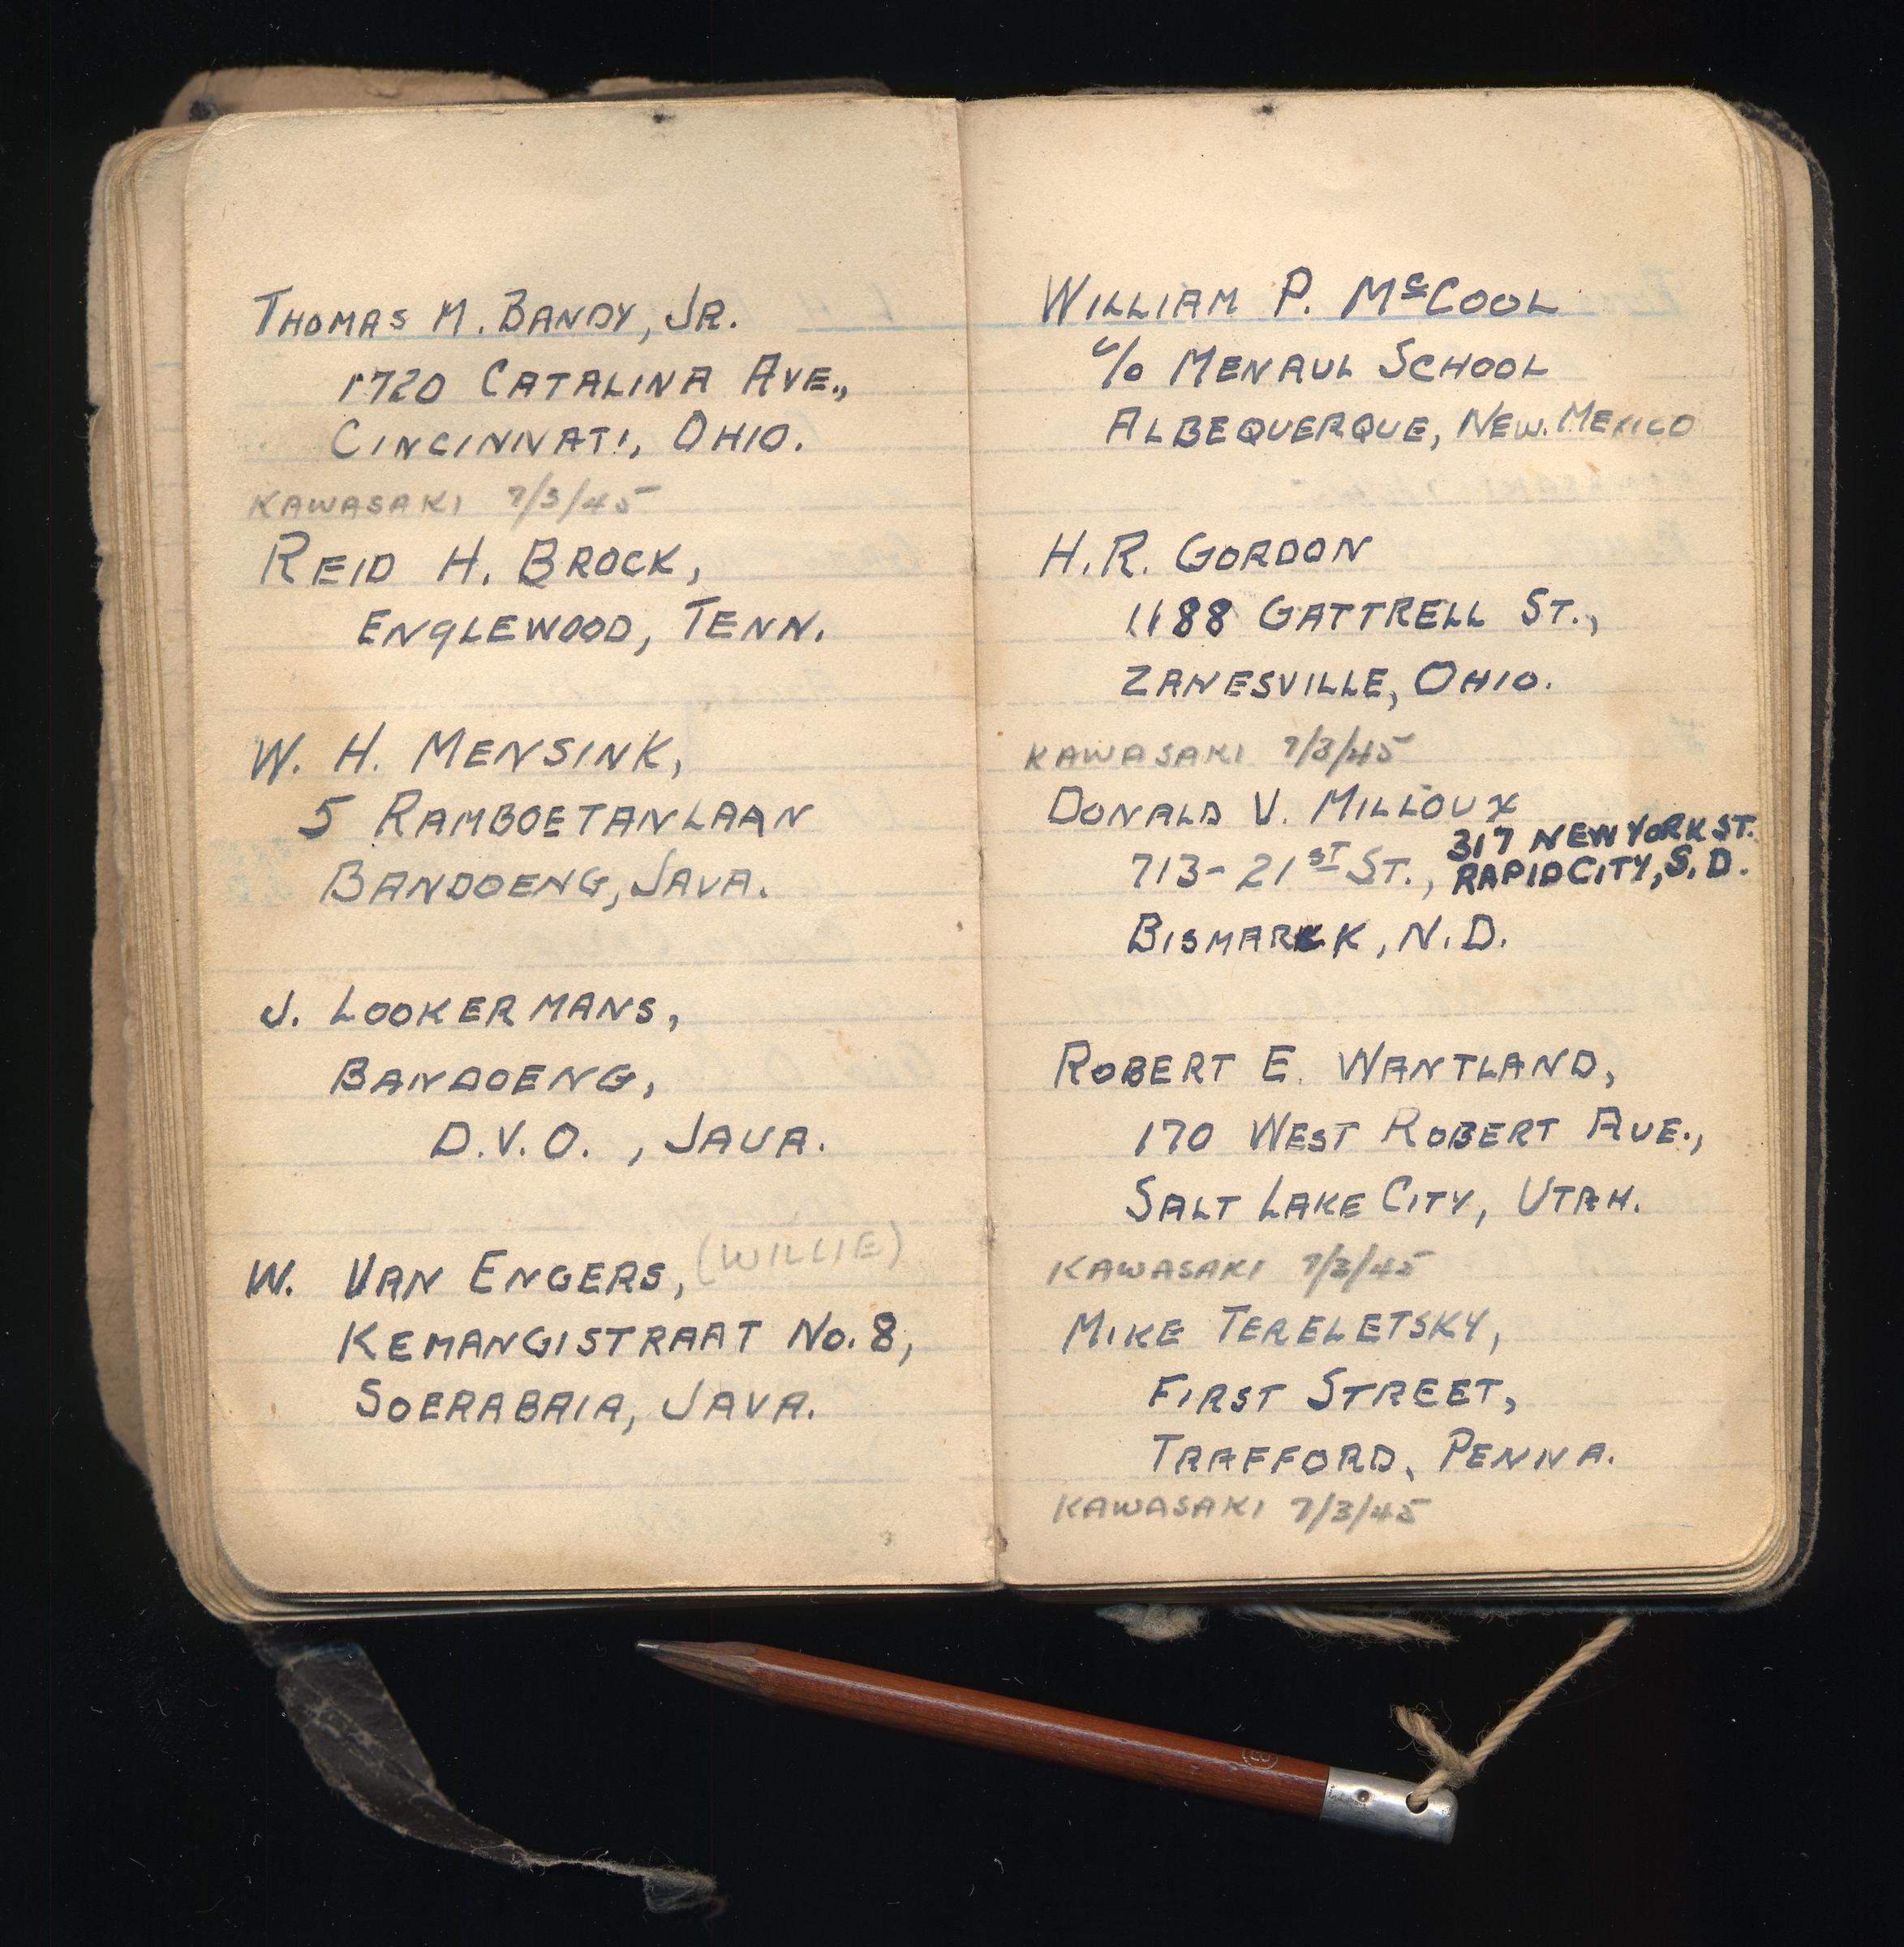 THOMAS M. BANDY, JR.
1720 CATALINA AVE.,
CINCINNATI, OHIO.
KAWASAKI 7/3/45
REID H. BROCK,
ENGLEWOOD, TENN.
W. H. MENSINK,
5 RAMBOETANLAAN
BANDOENG, JAVA.
J. LOOKERMANS,
BANDOENG,
D.V.O. , JAVA.
W. VAN ENGERS, (WILLIE)
KEMANGISTRAAT NO. 8,
SOERABAIA, JAVA.
WILLIAM P. McCOOL
c/o MENAUL SCHOOL
ALBEQUERQUE, NEW. MEXICO
H.R. GORDON
1188 GATTRELL ST.,
ZANESVILLE, OHIO.
KAWASAKI 7/3/45
DONALD V. MILLOUX
317 NEW YORK ST.
713-21ST ST., RAPID CITY, S.D.
BISMARCK, N.D.
ROBERT E. WANTLAND,
170 WEST ROBERT AVE.,
SALT LAKE CITY, UTAH.
KAWASAKI 7/3/45
MIKE TERELETSKY,
FIRST STREET,
TRAFFORD, PENNA.
KAWASAKI 7/3/45